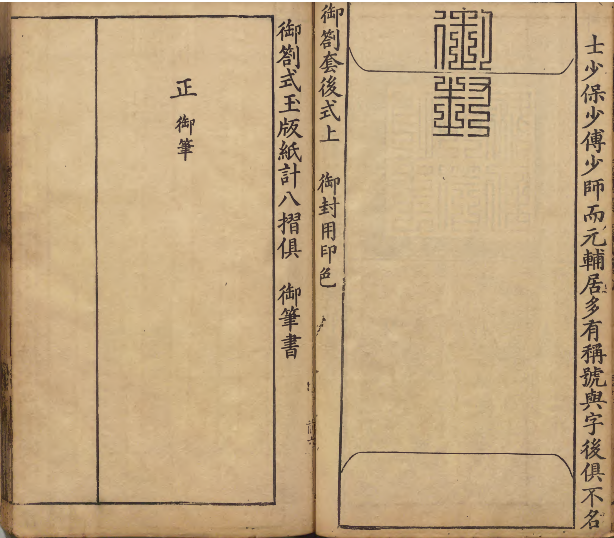 士少保少傅少師而元輔居多有稱號與字後俱不名
御封
御劄套後式上 御封用印色
御劄式玉版紙計八摺俱 御筆書
正 御筆